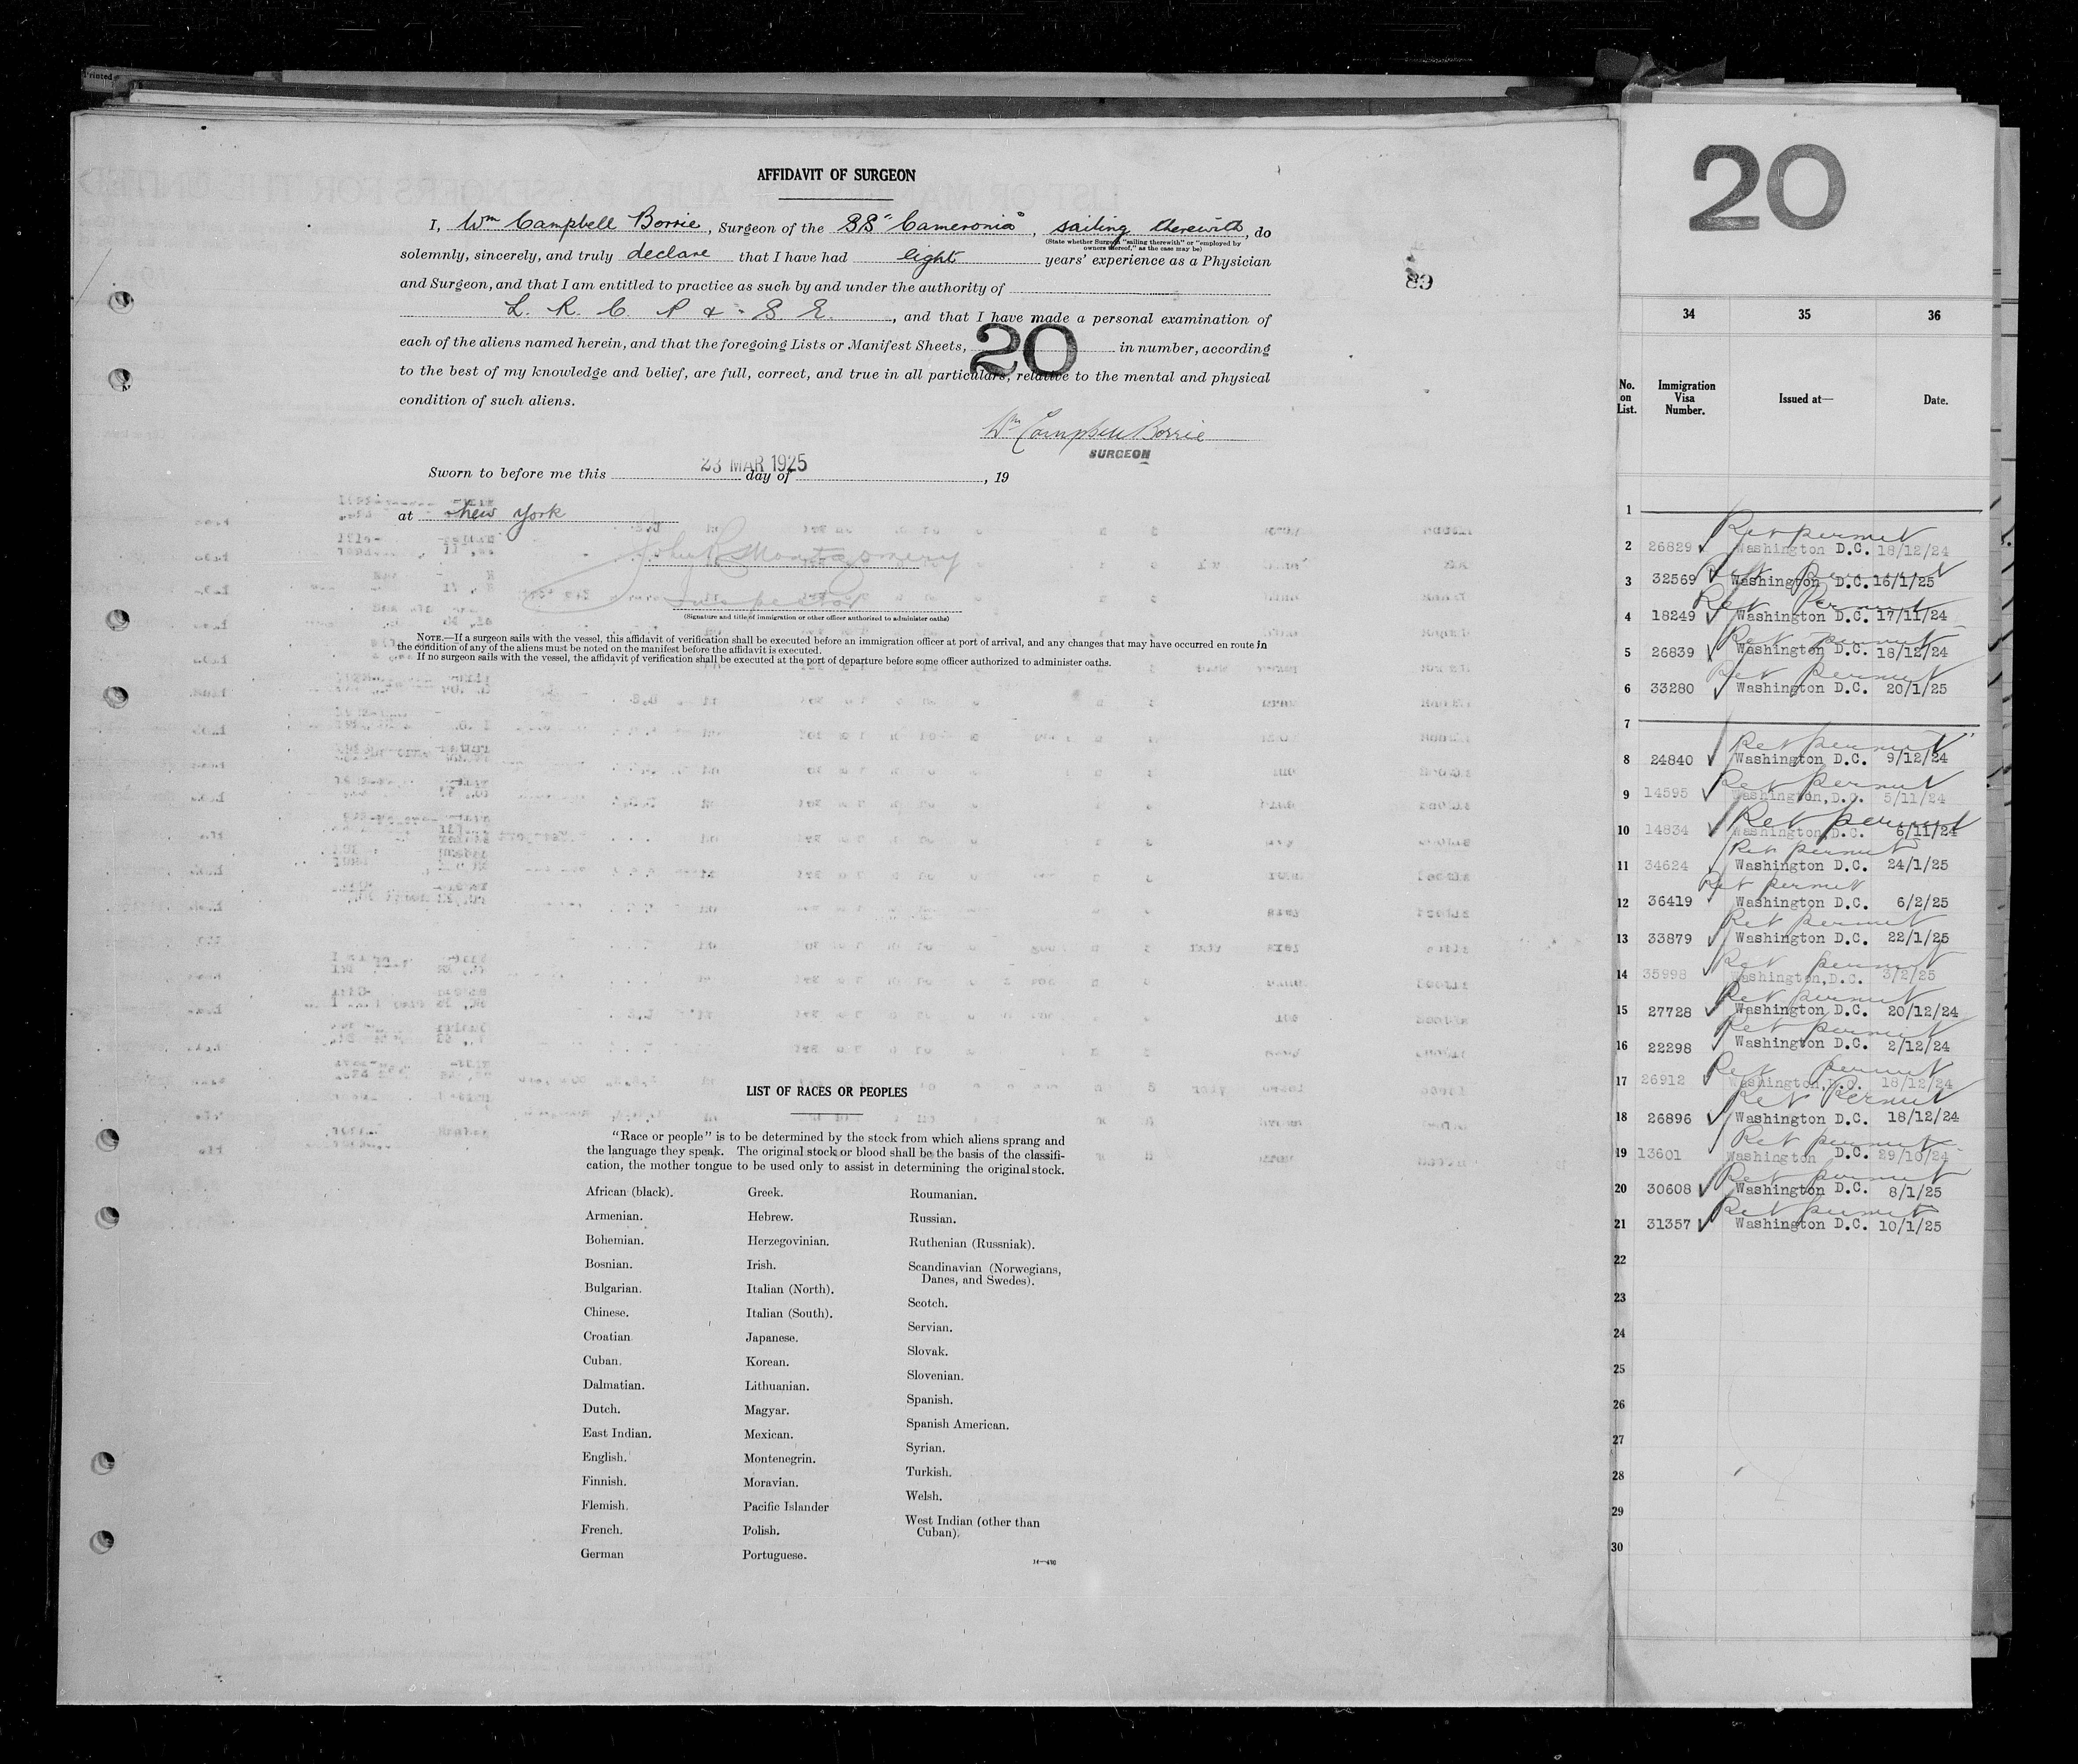 Printed
AFFIDAVIT OF SURGEON
I, Wm Campbell Borrie, Surgeon of the SS "Cameronia", sailing therewith, do
(State whether Surgeon "sailing therewith" or "employed by
owners thereof," as the case may be)
solemnly, sincerely, and truly declare that I have had eight years' experience as a Physician
and Surgeon, and that I am entitled to practice as such by and under the authority of
L. R. C. P & S E., and that I have made a personal examination of
each of the aliens named herein, and that the foregoing Lists or Manifest Sheets, 20 in number, according
to the best of my knowledge and belief, are full, correct, and true in all particulars, relative to the mental and physical
condition of such aliens.
Wm Campbell Borrie
SURGEON
Sworn to before me this 23 MAR 1925 day of , 19
at New York
John R Montgomery
Inspector
(Signature and title of immigration or other officer authorized to administer oaths)
NOTE.—If a surgeon sails with the vessel, this affidavit of verification shall be executed before an immigration officer at port of arrival, and any changes that may have occurred en route in
the condition of any of the aliens must be noted on the manifest before the affidavit is executed.
If no surgeon sails with the vessel, the affidavit of verification shall be executed at the port of departure before some officer authorized to administer oaths.
LIST OF RACES OR PEOPLES
"Race or people" is to be determined by the stock from which aliens sprang and
the language they speak. The original stock or blood shall be the basis of the classifi-
cation, the mother tongue to be used only to assist in determining the original stock.
African (black).
Armenian.
Bohemian.
Bosnian.
Bulgarian.
Chinese.
Croatian
Cuban.
Dalmatian.
Dutch.
East Indian.
English.
Finnish.
Flemish.
French.
German
Greek.
Hebrew.
Herzegovinian.
Irish.
Italian (North).
Italian (South).
Japanese.
Korean.
Lithuanian.
Magyar.
Mexican.
Montenegrin.
Moravian.
Pacific Islander
Polish.
Portuguese.
Roumanian.
Russian.
Ruthenian (Russniak).
Scandinavian (Norwegians,
Danes, and Swedes).
Scotch.
Servian.
Slovak.
Slovenian.
Spanish.
Spanish American.
Syrian.
Turkish.
Welsh.
West Indian (other than
Cuban).
89
20
34 35 36
No. on List. Immigration Visa Number. Issued at— Date.
1
Ret permit
2 26829 Washington D.C. 18/12/24
Ret Permit
3 32569 Washington D.C. 16/1/25
Ret Permit
4 18249 Washington D.C. 17/11/24
Ret permit
5 26839 Washington D.C. 18/12/24
Ret permit
6 33280 Washington D.C. 20/1/25
7
Ret permit
8 24840 Washington D.C. 9/12/24
Ret permit
9 14595 Washington, D.C. 5/11/24
Ret permit
10 14834 Washington, D.C. 6/11/24
Ret permit
11 34624 Washington D.C. 24/1/25
Ret permit
12 36419 Washington D.C. 6/2/25
Ret permit
13 33879 Washington D.C. 22/1/25
Ret permit
14 35998 Washington, D.C. 3/2/25
Ret permit
15 27728 Washington D.C. 20/12/24
Ret permit
16 22298 Washington D.C. 2/12/24
Ret permit
17 26912 Washington, D.C. 18/12/24
Ret Permit
18 26896 Washington D.C. 18/12/24
Ret permit
19 13601 Washington D.C. 29/10/24
Ret permit
20 30608 Washington D.C. 8/1/25
Ret permit
21 31357 Washington D.C. 10/1/25
22
23
24
25
26
27
28
29
30